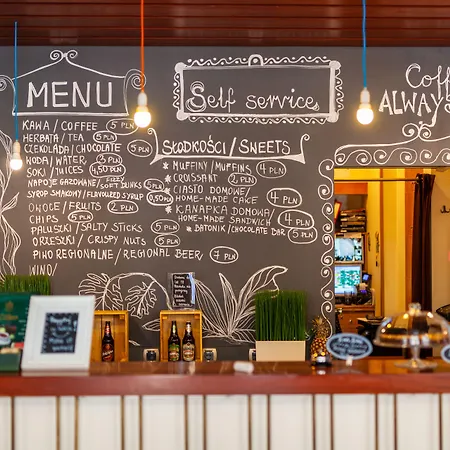 MENU
KAWA / COFFEE 5 PLN
HERBATA / TEA 5 PLN
CZEKOLADA / CHOCOLATE 5 PLN
WODA / WATER 4,50 PLN
SOKI / JUICES 5 PLN
NAPOJE GAZOWANE / FIZZY SOFT DRINKS 5 PLN
SYROP SMAKOWY / FLAVOURED SYRUP 0,50 PLN
OWOCE / FRUITS 2 PLN
CHIPS 5 PLN
PALUSZKI / SALTY STICKS 5 PLN
ORZESZKI / CRISPY NUTS 5 PLN
PIWO REGIONALNE / REGIONAL BEER 7 PLN
WINO /
Self service
SŁODKOŚCI / SWEETS
* MUFFINY / MUFFINS 4 PLN
* CROISSANT 4 PLN
* CIASTO DOMOWE / HOME-MADE CAKE 4 PLN
* KANAPKA DOMOWA / HOME-MADE SANDWICH 4 PLN
* BATONIK / CHOCOLATE BAR 5 PLN
Coff
ALWAYS